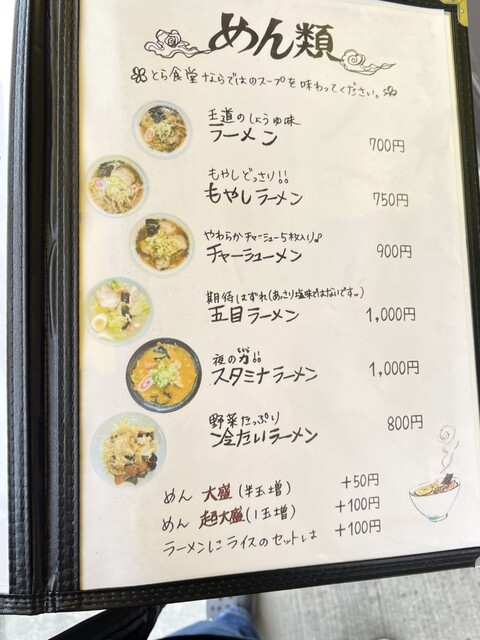 めん類
とら食堂ならではのスープを味わってください。
王道のしょうゆ味
ラーメン 700円
もやしどっさり!!
もやしラーメン 750円
やわらかチャーシュー5枚入り♪
チャーシューメン 900円
期待はずれ(あっさり塩味ではないです…)
五目ラーメン 1,000円
夜の力!!
スタミナラーメン 1,000円
野菜たっぷり
冷たいラーメン 800円
めん 大盛(半玉増) +50円
めん 超大盛(1玉増) +100円
ラーメンにライスのセットは +100円